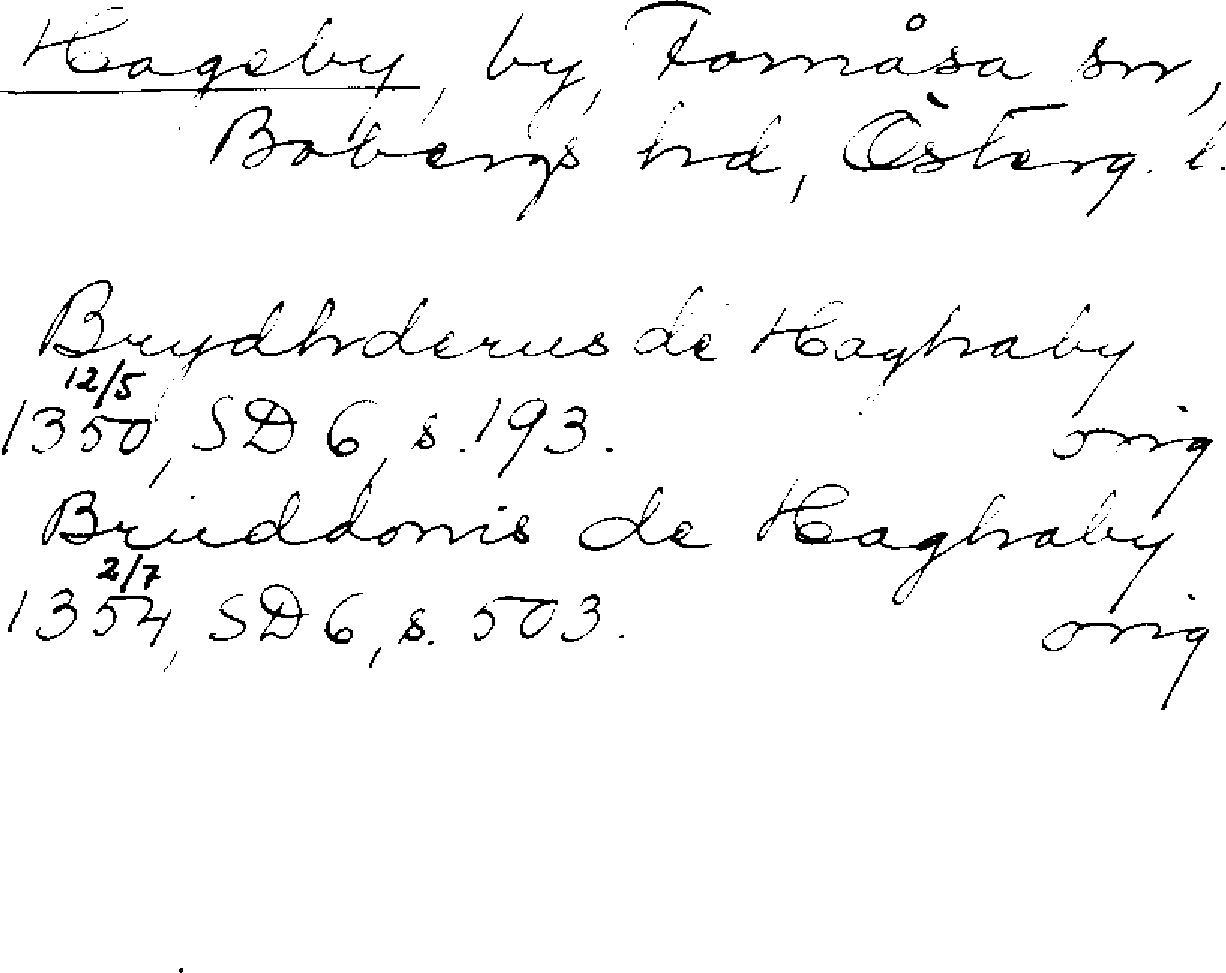 Hageby, by, Fornåsa sn,
Bobergs hd, Österg. l.
Brydhderus de Haghaby
12/5
1350, SD 6, s. 193. orig
Bruddonis de Haghaby
2/7
1354, SD 6, s. 503. orig